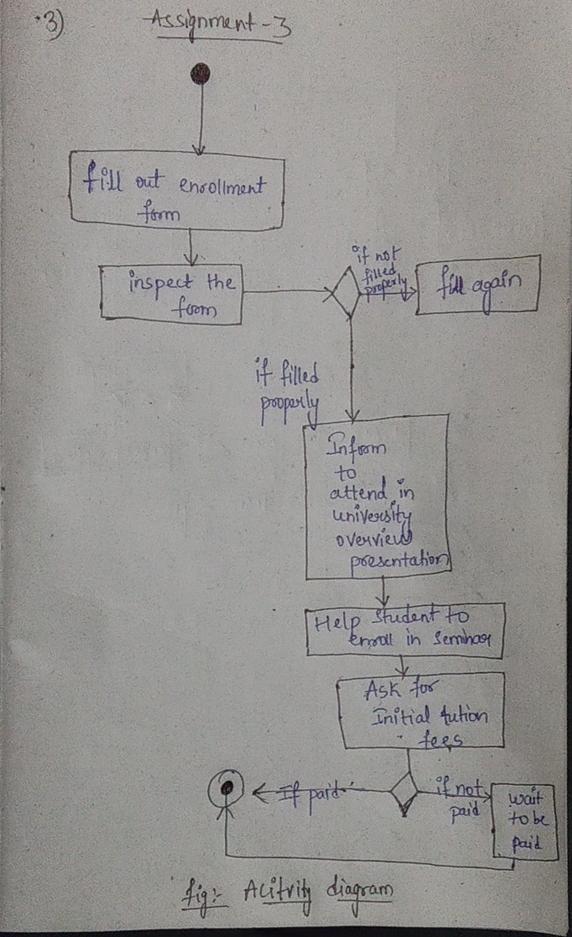 3)
Assignment-3
fill out enrollment
form
inspect the
form
if not
filled
properly
fill again
if filled
properly
Inform
to
attend in
university
overview
presentation
Help student to
enroll in seminar
Ask for
Initial tution
fees
If paid
if not
paid
wait
to be
paid
fig:- Acitvity diagram